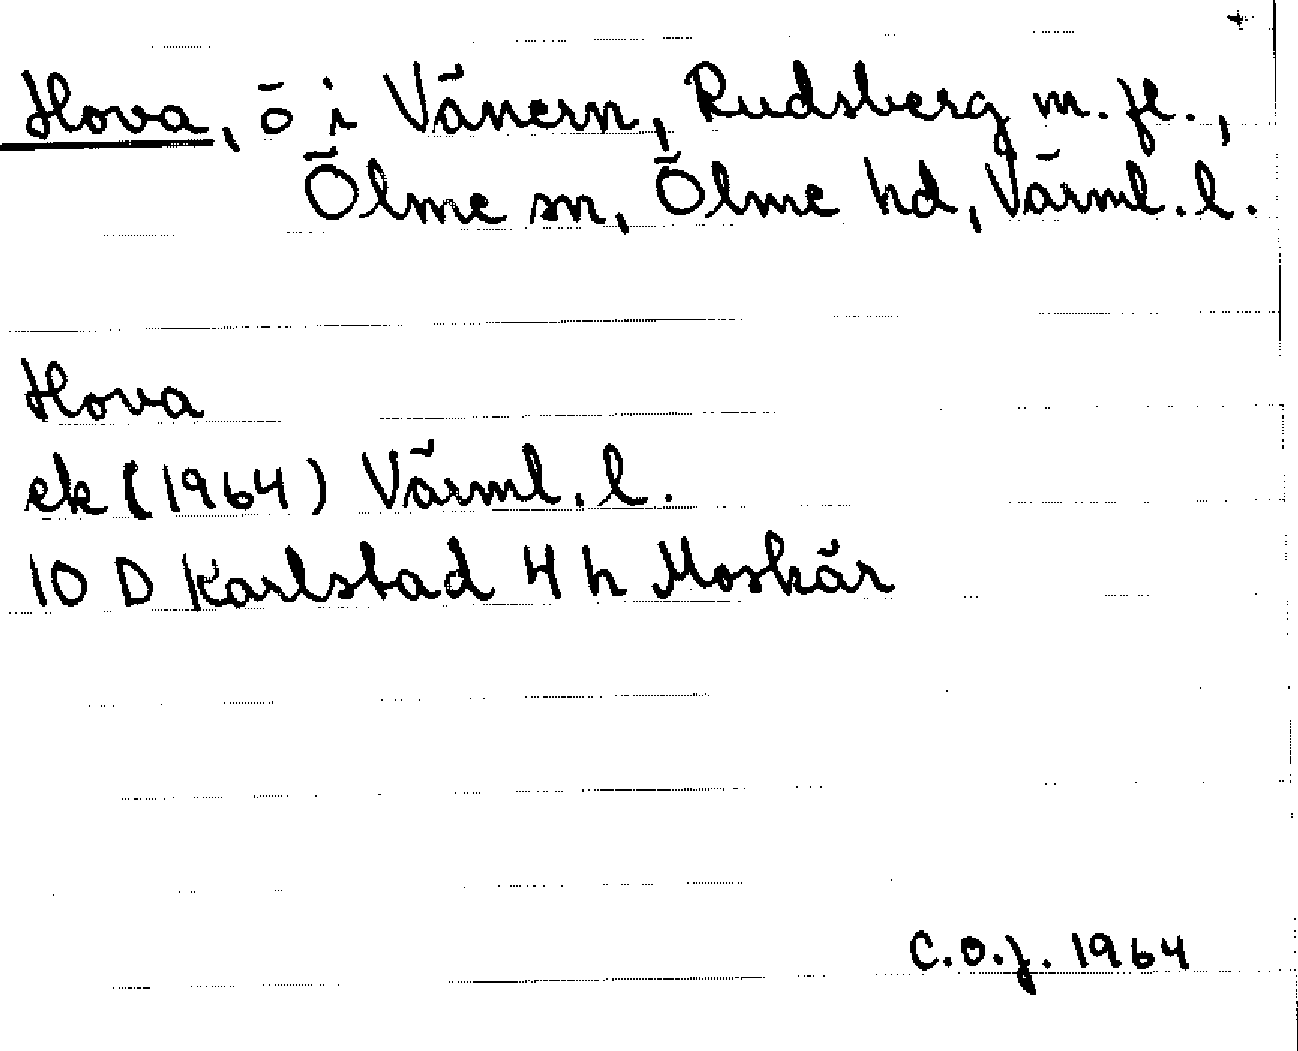 +
Hova, ö i Vänern, Rudsberg m. fl.,
Ölme sn, Ölme hd, Värml. l.
Hova
ek (1964) Värml. l.
10 D Karlstad 4 h Moskär
C.O.J. 1964